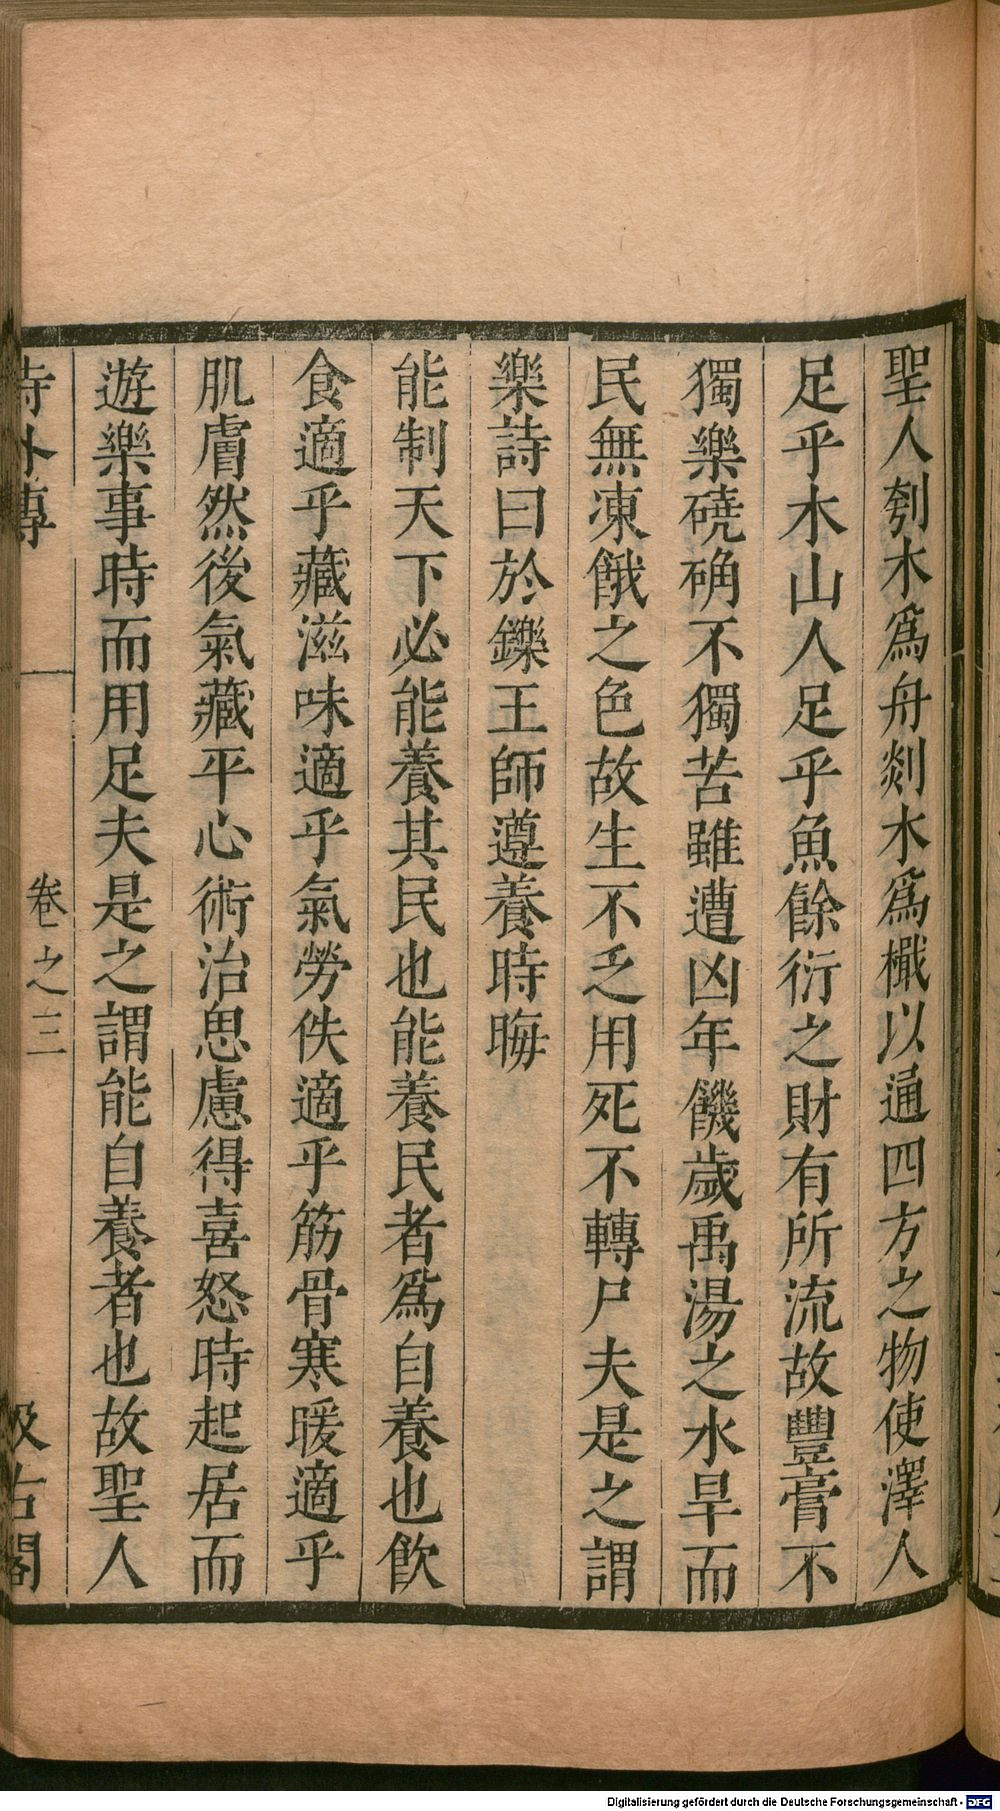 聖人刳木爲舟剡木爲檝以通四方之物使澤人
足乎木山人足乎魚餘衍之財有所流故豐膏不
獨樂磽确不獨苦雖遭凶年饑歲禹湯之水旱而
民無凍餓之色故生不乏用死不轉尸夫是之謂
樂詩曰於鑠王師遵養時晦
能制天下必能養其民也能養民者爲自養也飲
食適乎藏滋味適乎氣勞佚適乎筋骨寒暖適乎
肌膚然後氣藏平心術治思慮得喜怒時起居而
遊樂事時而用足夫是之謂能自養者也故聖人
詩外傳 卷之三 汲古閣
Digitalisierung gefördert durch die Deutsche Forschungsgemeinschaft - DFG